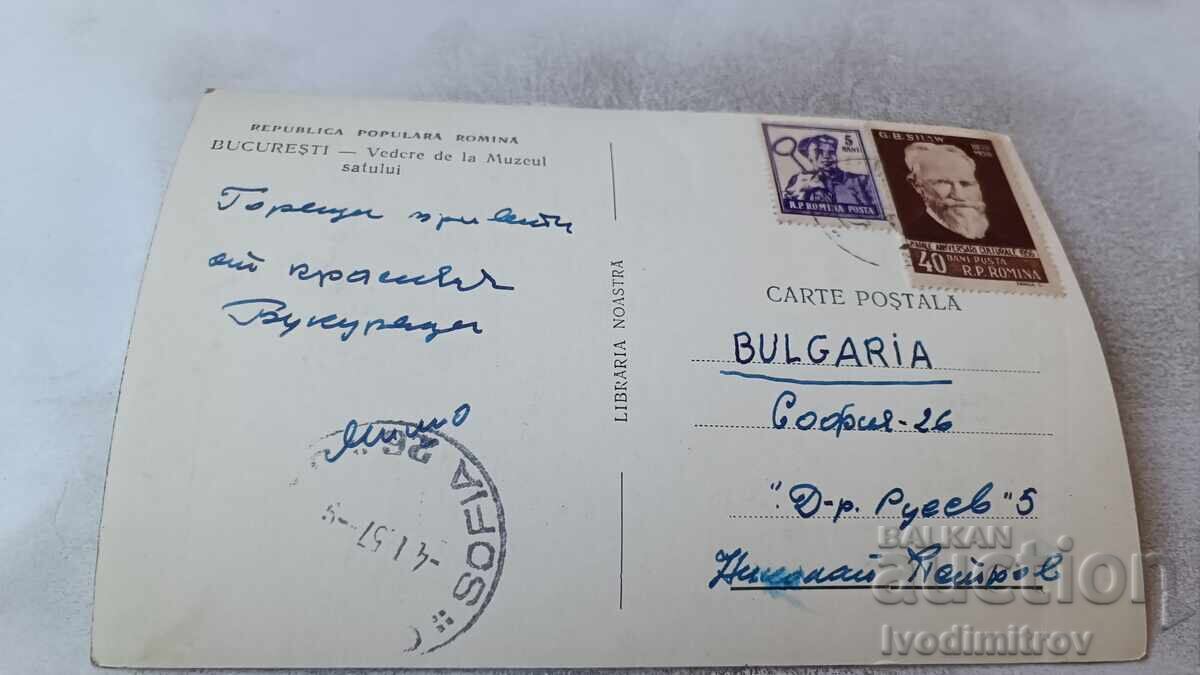 REPUBLICA POPULARA ROMINA
BUCUREȘTI — Vedere de la Muzeul
satului
Горещи привети
от красивия
Букурещ
Мимо
SOFIA 26
-4.1.57-9
LIBRARIA NOASTRA
5
BANI
R.P. ROMINA POSTA
G.B. SHAW
1856
1950
MARILE ANIVERSARI CULTURALE 1956
40 BANI POSTA
R.P. ROMINA
CARTE POȘTALA
BULGARIA
София-26
"Д-р. Русев" 5
Николай Петров
BALKAN
auction
Ivodimitrov